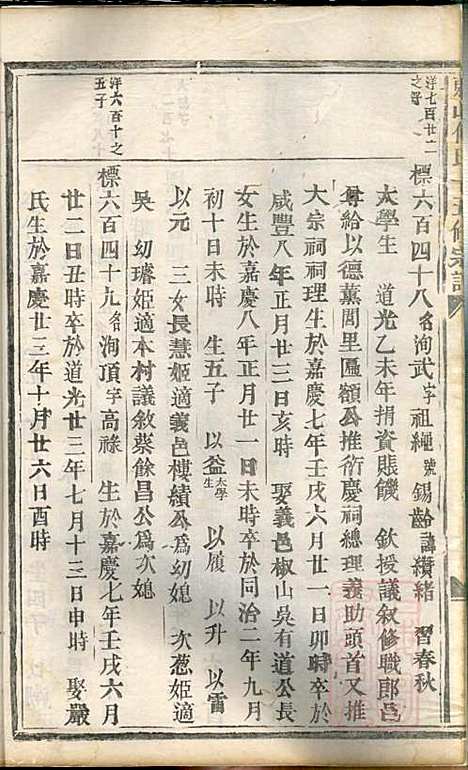 洋七百廿二
之子
標六百四十八名洵武字祖繩號錫齡諱纘緒 習春秋
太學生 道光乙未年捐資賑饑 欽授議敘修職郎邑
尊給以德薰閭里匾額公推衍慶祠總理義助頭首又推
大宗祠祠理生於嘉慶七年壬戌六月廿一日卯時卒於
咸豐八年正月廿三日亥時 娶義邑椒山吳有道公長
女生於嘉慶八年正月廿一日未時卒於同治二年九月
初十日未時 生五子 以益太學生 以履 以升 以雷
以元 三女長慧姬適義邑樓績公為幼媳 次葱姬適
吳 幼璿姬適本村議敘蔡餘昌公為次媳
洋六百十之
五子
標六百四十九名洵頂字高祿 生於嘉慶七年壬戌六月
廿二日丑時卒於道光廿三年七月十三日申時 娶嚴
氏生於嘉慶廿三年十月廿六日酉時